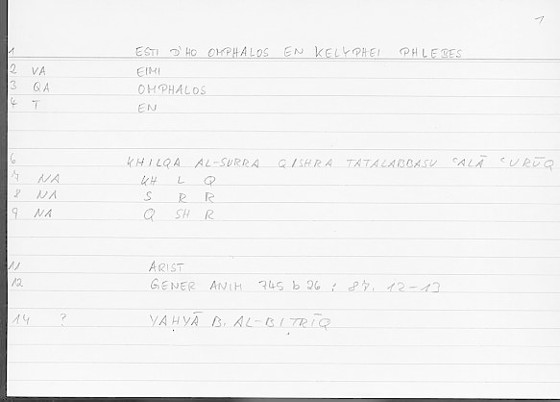 1
1 ESTI D'HO OMPHALOS EN KELYPHEI PHLEBES
2 VA EIMI
3 QA OMPHALOS
4 T EN
6 KHILQA AL-SURRA QISHRA TATALABBASU ʿALĀ ʿURŪQ
7 NA KH L Q
8 NA S R R
9 NA Q SH R
11 ARIST
12 GENER ANIM 745 b 26 : 87. 12-13
14 ? YAḤYĀ B. AL-BIṬRĪQ